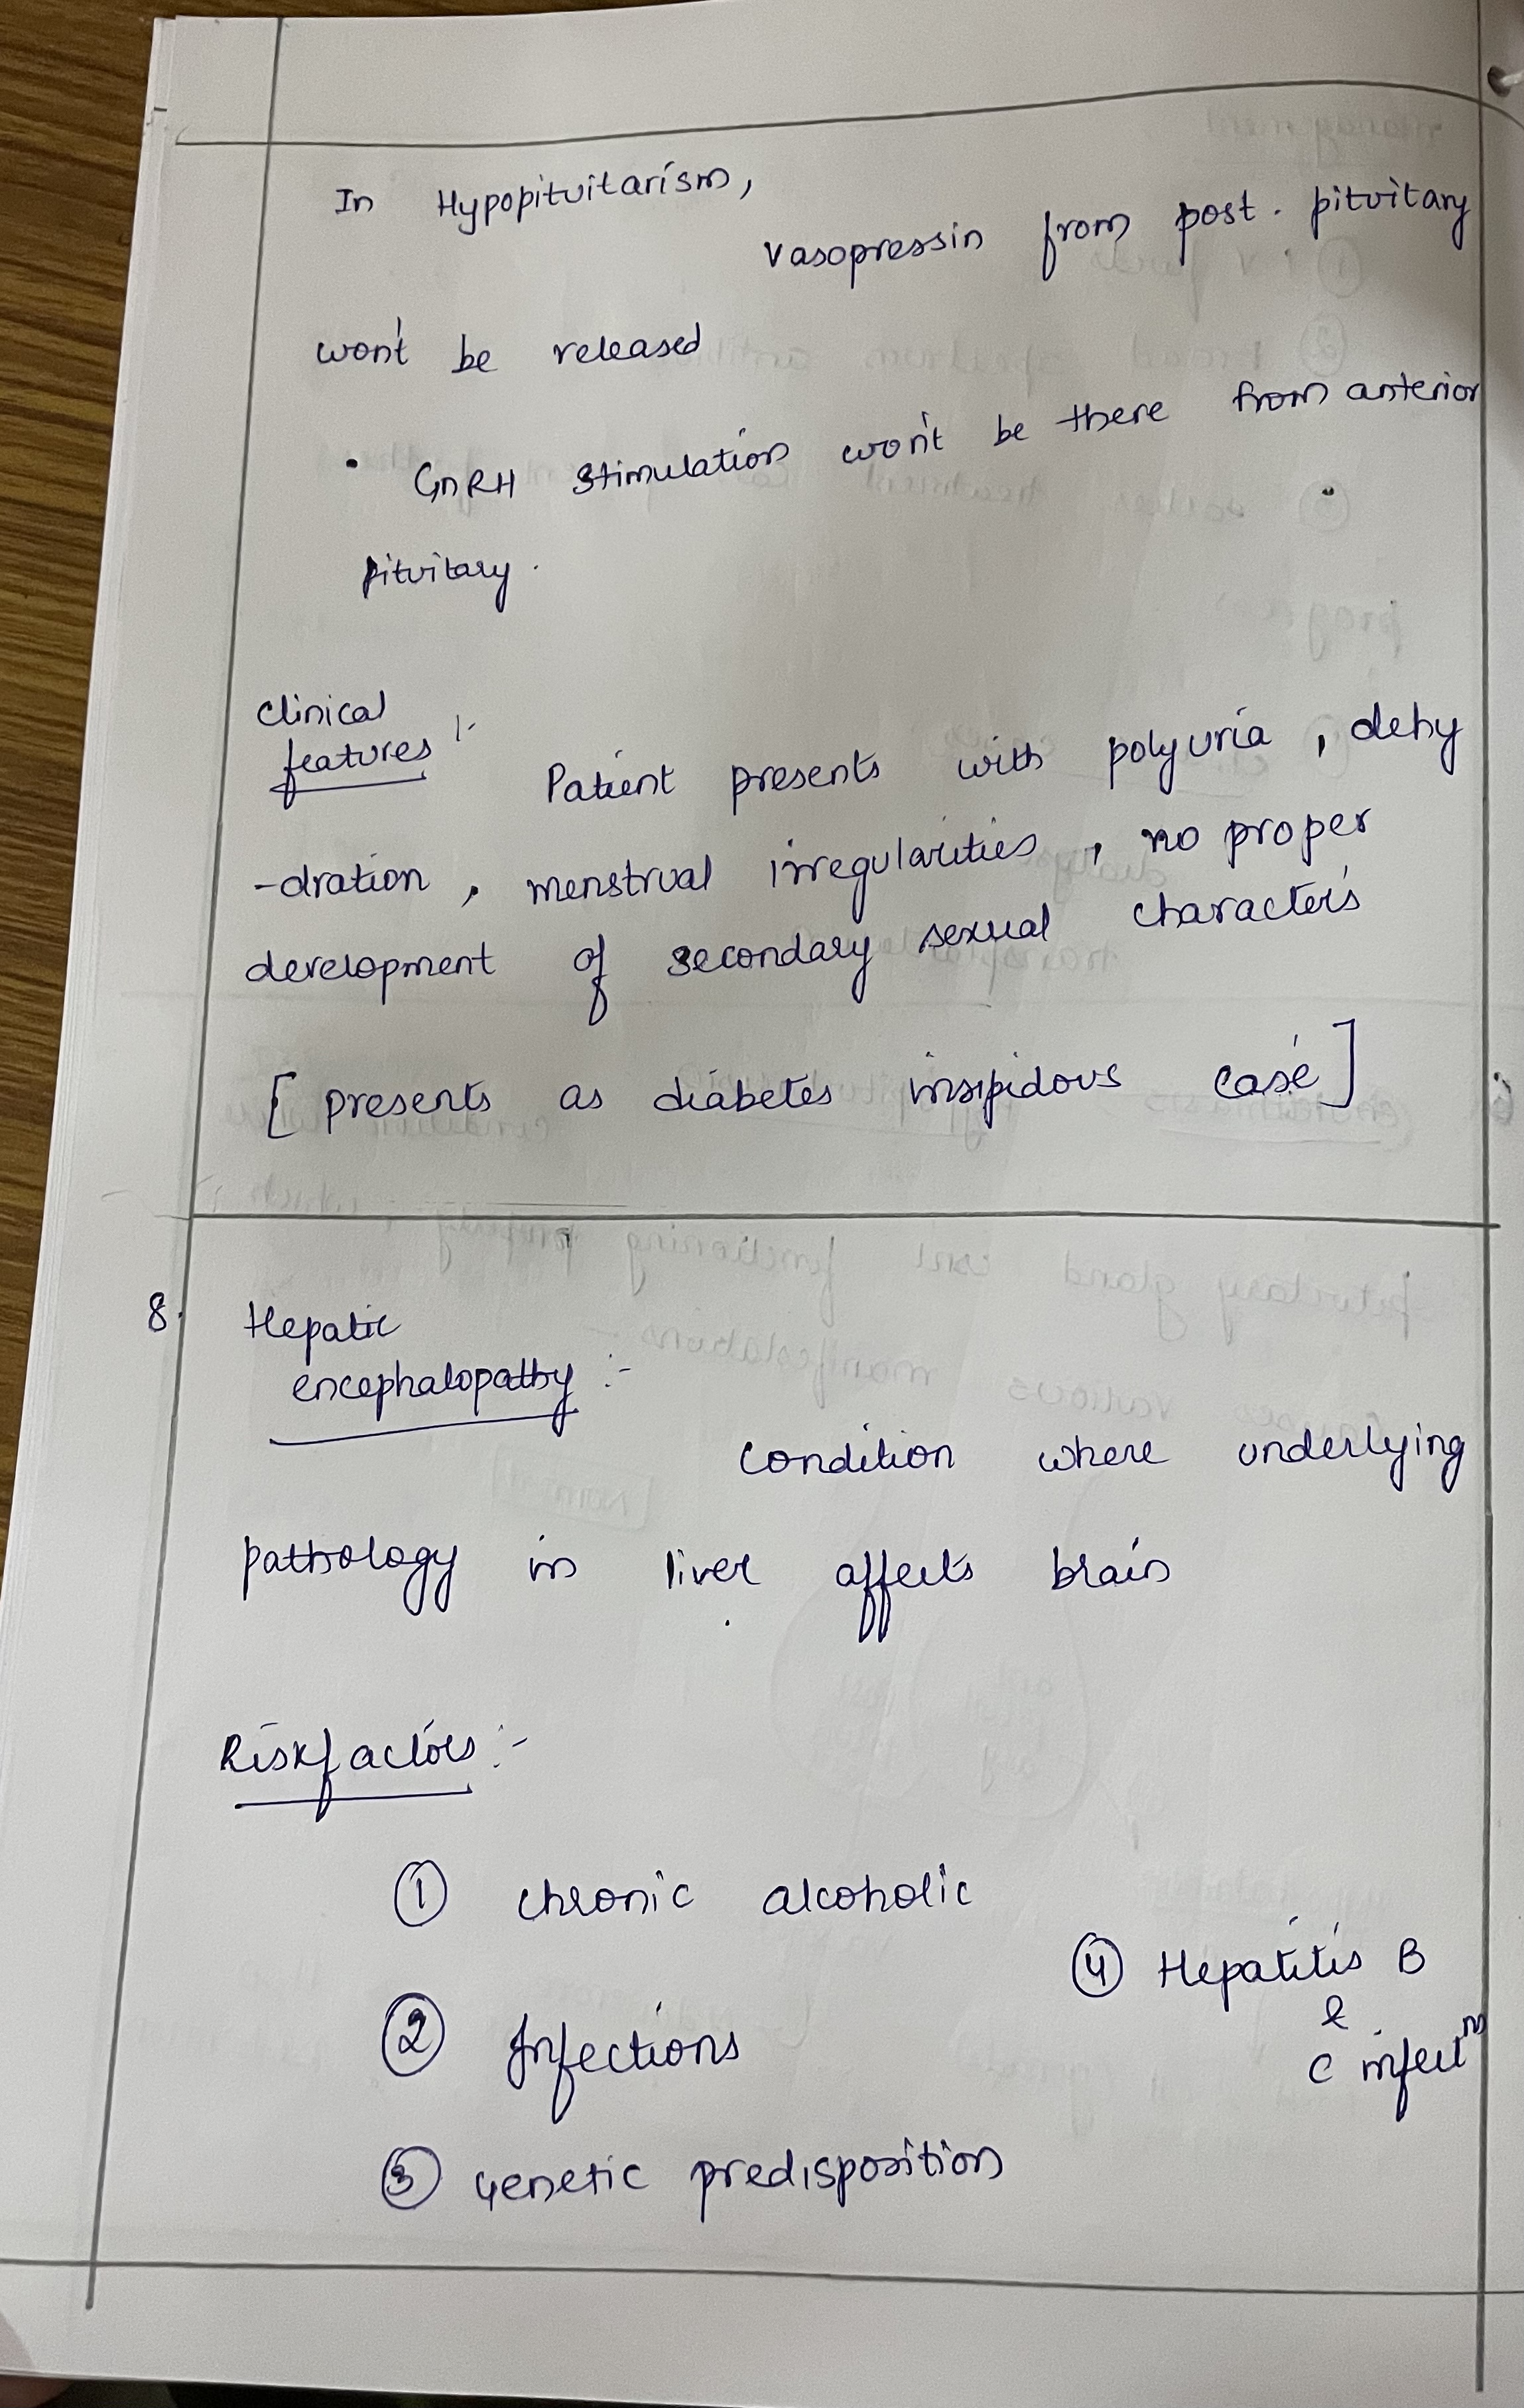 In Hypopituitarism,
vasopressin from post. pituitary
won't be released
• GnRH stimulation won't be there from anterior
pituitary.
Clinical
features :-
Patient presents with polyuria, dehy
-dration, menstrual irregularities, no proper
development of secondary sexual characters
[ presents as diabetes insipidous case ]
8. Hepatic
encephalopathy :-
condition where underlying
pathology in liver affects brain
Riskfactors :-
① chronic alcoholic
② Infections
③ Genetic predisposition
④ Hepatitis B
&
C infectⁿ